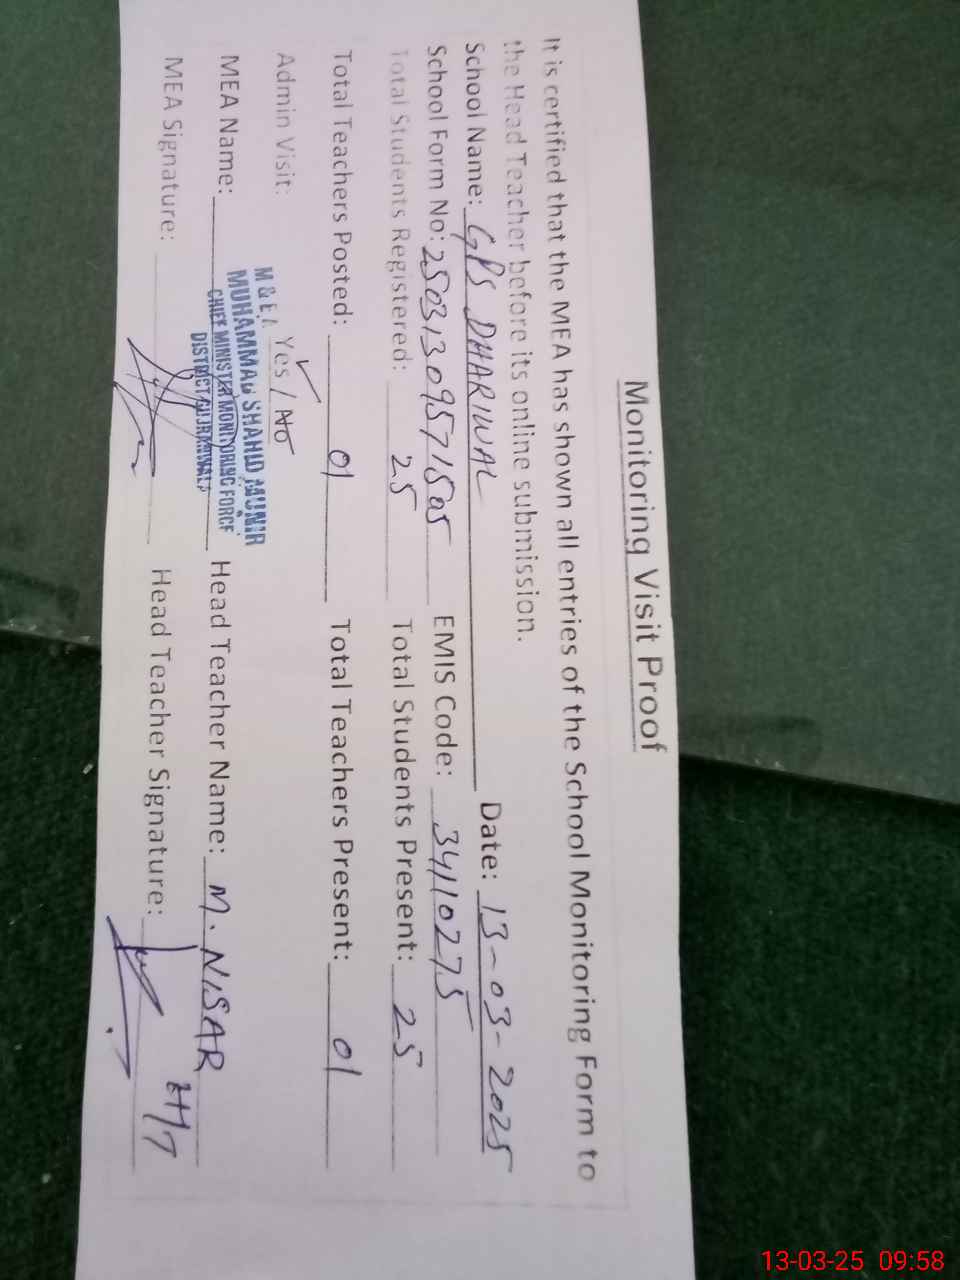 Monitoring Visit Proof
It is certified that the MEA has shown all entries of the School Monitoring Form to
the Head Teacher before its online submission.
School Name: GPS DHARIWAL Date: 13-03-2025
School Form No: 25031309571505 EMIS Code: 34110275
Total Students Registered: 25 Total Students Present: 25
Total Teachers Posted: 01 Total Teachers Present: 01
Admin Visit: Yes / No
M & E A
MUHAMMAD SHAHID MUNIR
CHIEF MINISTER MONITORING FORCE
DISTRICT GUJRANWALA
MEA Name: Head Teacher Name: M. NISAR
MEA Signature: Head Teacher Signature:
13-03-25 09:58